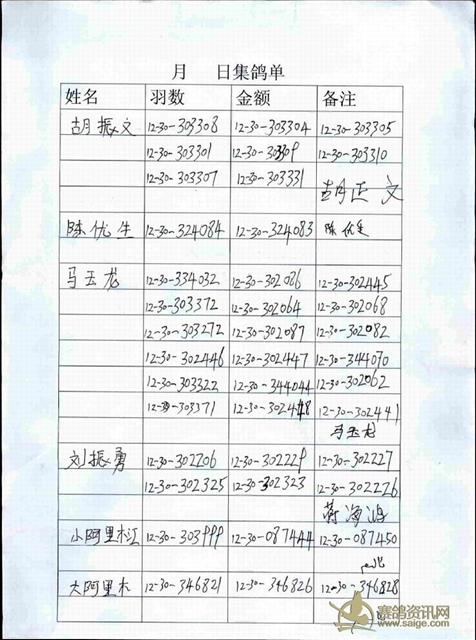 月 日集鸽单
姓名 羽数 金额 备注
胡振文 12-30-303308 12-30-303304 12-30-303305
12-30-303301 12-30-30309 12-30-303310
12-30-303307 12-30-303331
文
陈优生 12-30-324084 12-30-324083 陈优生
马玉龙 12-30-334032 12-30-302086 12-30-302445
12-30-303372 12-30-302064 12-30-302068
12-30-303272 12-30-302087 12-30-302082
12-30-302446 12-30-302447 12-30-344070
12-30-303322 12-30-344044 12-30-302062
12-30-303371 12-30-302448 12-30-302441
马玉龙
刘振勇 12-30-302206 12-30-302229 12-30-302227
12-30-302325 12-30-302323 12-30-302226
蒋海鸿
小阿里木江 12-30-303999 12-30-087444 12-30-087450
大阿里木 12-30-346821 12-30-346826 12-30-346828
赛鸽资讯网
www.saige.com